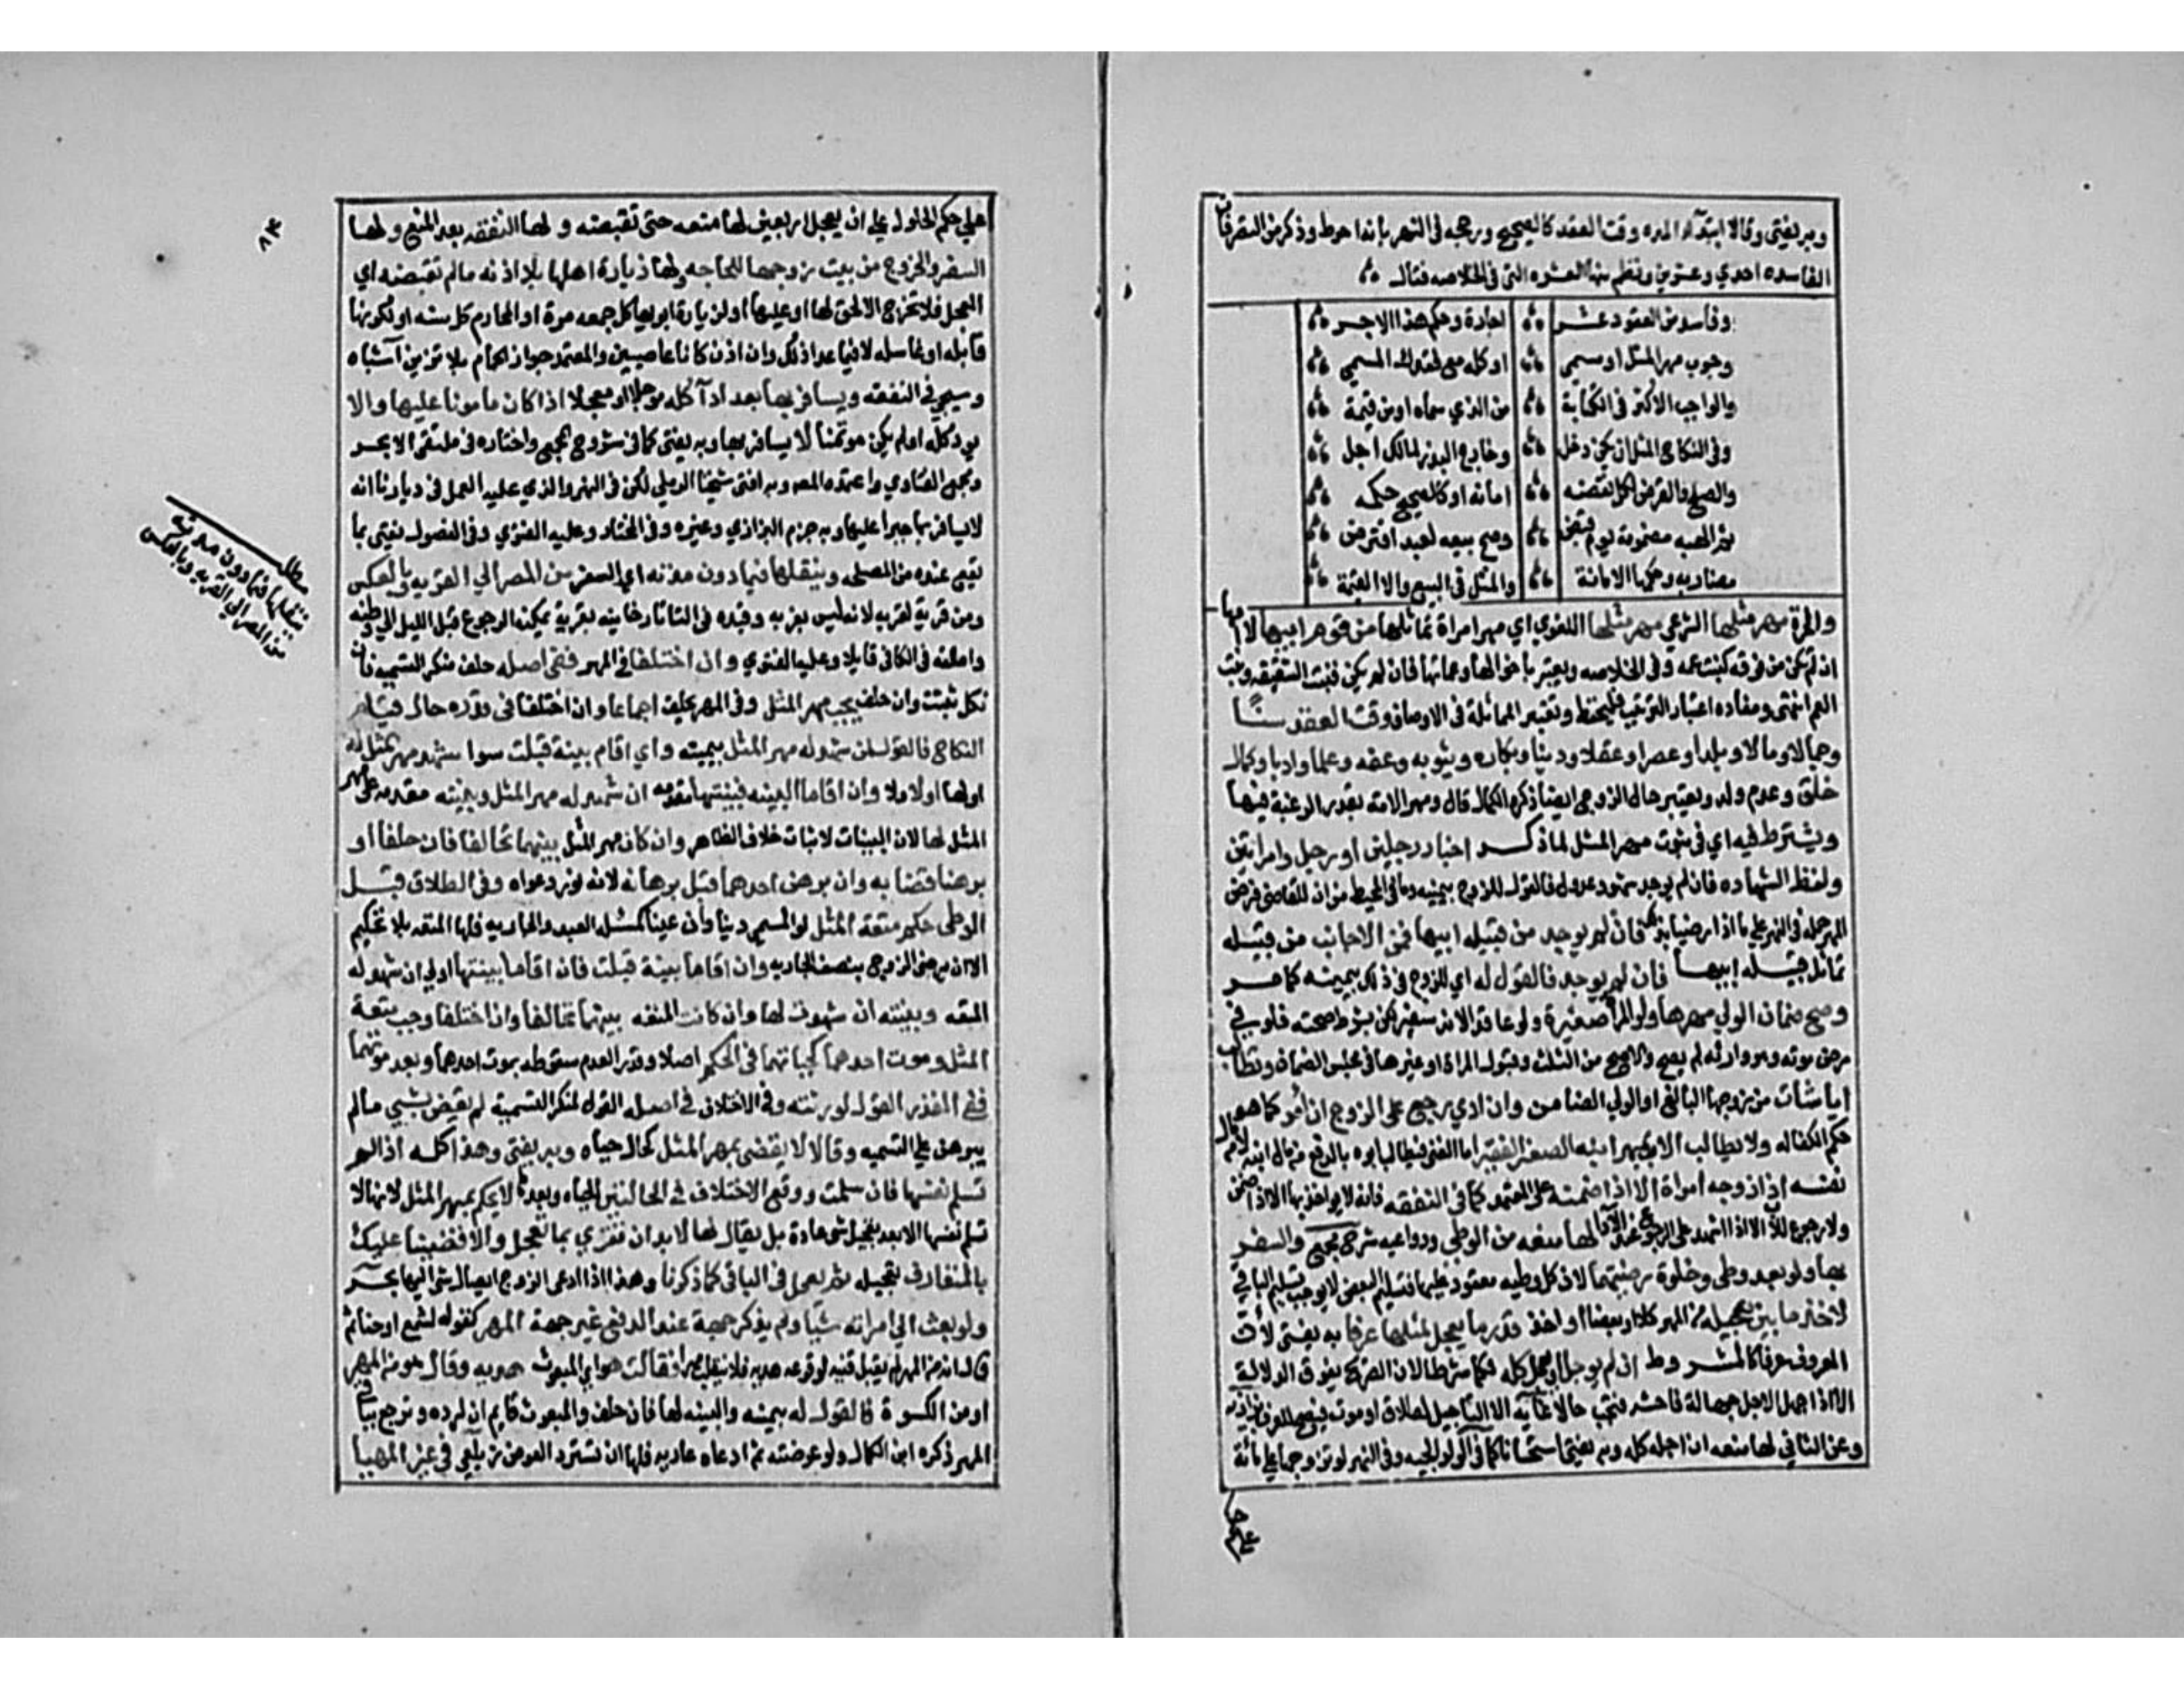 وبه يفتى وقالا ابتداء المده وقت العقد كالصحيح ورجحه في النهر بانه احوط وذكر من التصرفات
الفاسده احدي وعشرين ونظم منها العشره التي في الخلاصه فقال
وفاسد من العقود عشر اجارة وحكم هذا الاجر
وجوب مهر المثل او مسمى او كله مع فقدك المسمى
والواجب الاكثر في الكتابة من الذي سماه او من قيمة
وفي النكاح المثل ان يكن دخل وخارج البذر لمالك اجل
والصلح والرهن لكل نقضه امانة او كالصحيح حكمه
ثم الهبه مضمونة يوم قبض وصح بيعه لعبد اقترض
مضاربه وحكمها الامانة والمثل في البيع والا القيمة
والحرة مهر مثلها الشرعي مهر مثلها اللغوي اي مهر امراة تماثلها من قوم ابيها لا امها
ان لم تكن من قومه كبنت عمه وفي الخلاصه ويعتبر باخواتها وعماتها فان لم يكن فبنت الشقيقه وبنت
العم انتهى ومفاده اعتبار الترتيب فليحفظ وتعتبر المماثلة في الاوصاف وقت العقد سنا
وجمالا ومالا وبلدا وعصرا وعقلا ودينا وبكاره وثيوبه وعفه وعلما وادبا وكمال
خلق وعدم ولد ويعتبر حال الزوج ايضا ذكره الكمال قال ومهر الامه بقدر الرغبة فيها
ويشترط فيه اي في ثبوت مهر المثل لما ذكر اخبار رجلين او رجل وامراتين
ولفظ الشهاده فان لم يوجد شهود عدول فالقول للزوج بيمينه وما في المحيط من ان للقاضي فرض
المهر حمله في النهر على ما اذا رضيا بذلك فان لم يوجد من قبيلة ابيها فمن الاجانب من قبيله
تماثل قبيله ابيها فان لم يوجد فالقول له اي للزوج في ذلك بيمينه كما مر
وصح ضمان الولي مهرها ولو المراة صغيرة ولو عاقدا لانه سفير لكن بشرط صحته فلو في
مرض موته وهو وارثه لم يصح والا صح من الثلث وقبول المراة او غيرها في مجلس الضمان وتطالب
ايا شاءت من زوجها البالغ او الولي الضامن وان ادي يرجع على الزوج ان امر كما هو
حكم الكفاله ولا يطالب الاب بمهر ابنه الصغير الفقير اما الغني فيطالب ابوه بالدفع من مال ابنه لا من مال
نفسه اذا زوجه امراة الا اذا ضمنه على المعتمد كما في النفقه فانه لا يواخذ بها الا اذا ضمن
ولا رجوع للاب الا اذا اشهد على الرجوع عند الادا ولها منعه من الوطي ودواعيه شرح مجمع والسفر
بها ولو بعد وطي وخلوة رضيتهما لان كل وطيه معقود عليها فتسليم البعض لا يوجب تسليم الباقي
لاخذ ما بين تعجيله من المهر كلا او بعضا او اخذ قدر ما يعجل لمثلها عرفا به يفتى لان
المعروف عرفا كالمشروط ان لم يوجل او يعجل كله فكما شرطا لان الصريح يفوق الدلالة
الا اذا جهل الاجل جهالة فاحشه فيجب حالا غاية الا التاجيل لطلاق او موت فيصح للعرف بزازيه
وعن الثاني لها منعه ان اجله كله وبه يفتى استحسانا كما في الولوالجيه وفي النهر لو تزوجها على مائة
على حكم
٨٣
على حكم الحلول على ان يعجل اربعين لها منعه حتى تقبضه ولها النفقه بعد المنع ولها
السفر والخروج من بيت زوجها للحاجه ولها زيارة اهلها بلا اذنه ما لم تقبضه اي
المعجل فلا تخرج الا لحق لها او عليها او لزيارة ابويها كل جمعه مرة او المحارم كل سنه او لكونها
قابله او غاسله لا فيما عدا ذلك وان اذن كانا عاصيين والمعتمد جواز الحمام بلا تزين اشباه
وسيجي في النفقه ويسافر بها بعد اداء كله موجلا او معجلا اذا كان مامونا عليها والا
يود كله او لم يكن موتمنا لا يسافر بها وبه يفتى كما في شروح المجمع واختاره في ملتقى الابحر
ومجمع الفتاوي واعتمده المصه وبه افتى شيخنا الرملي لكن في النهر والذي عليه العمل في ديارنا انه
لا يسافر بها جبرا عليها وبه جزم البزازي وغيره وفي المختار وعليه الفتوي وفي الفصول يفتى بما
يقع عنده من المصلحه وينقلها فيما دون مدته اي السفر من المصر الى القريه وبالعكس
ومن قرية لقريه لانه ليس بغربه وقيده في التاتارخانيه بقرية يمكنه الرجوع قبل الليل الى وطنه
واطلقه في الكافي قايلا وعليه الفتوي وان اختلفا في المهر ففي اصله حلف منكر التسميه فان
نكل ثبتت وان حلف يجب مهر المثل وفي المهر يحلف اجماعا وان اختلفا في قدره حال قيام
النكاح فالقول لمن شهد له مهر المثل بيمينه واي اقام بينة قبلت سوا شهد مهر المثل له
اولها اولا ولا وان اقاما البينه فبينتها مقدمه ان شهد له مهر المثل وبينته مقدمه على مهر
المثل لها لان البينات لاثبات خلاف الظاهر وان كان مهر المثل بينهما تحالفا فان حلفا او
برهنا قضا به وان برهن احدهما قبل برهانه لانه نور دعواه وفي الطلاق قبل
الوطى حكم متعة المثل لو المسمي دينا وان عينا كمسئلة العبد والجاريه فلها المتعه بلا تحكيم
الا ان يرضى الزوج بنصف الجاريه وان اقاما بينة قبلت فان اقاما بينتها اولى ان شهد له
المتعه وبينته ان شهدت لها وان كانت المتعه بينهما تحالفا وان اختلفا وجب متعة
المثل وموت احدهما كحياتهما في الحكم اصلا وقدرا لعدم سقوطه بموت احدهما وبعد موتهما
ففي القدر القول لورثته وفي الاختلاف في اصله القول لمنكر التسمية لم يقض بشيي ما لم
يبرهن على التسميه وقالا لا يقضى بمهر المثل كحال حياه وبه يفتى وهذا كله اذا لم
تسلم نفسها فان سلمت ووقع الاختلاف في الحالتين الحياه وبعدها لا يحكم بمهر المثل لانها لا
تسلم نفسها الا بعد تعجيل شي عادة بل يقال لها لا بد ان تقري بما تعجل والا قضينا عليك
بالمتعارف تعجيله ثم يعمل في الباقي كما ذكرنا وهذا اذا ادعى الزوج ايصال شي اليها بحر
ولو بعث الى امراته شيا ولم يذكر جهة عند الدفع غير جهة المهر كقوله لشمع او حنا ثم
قال انه من المهر لم يقبل قنيه لوقوعه هديه فلا ينقلب مهرا فقالت هو اي المبعوث هديه وقال هو من المهر
او من الكسوة فالقول له بيمينه والبينه لها فان حلف والمبعوث قايم ان لرده وترجع بباقي
المهر ذكره ابن الكمال ولو عوضته ثم ادعاه عاريه فلها ان تسترد العوض من زيلعي في غير المهيا
مطلب
ينقلها فيما دون مدته
من المصر الى القريه وبالعكس